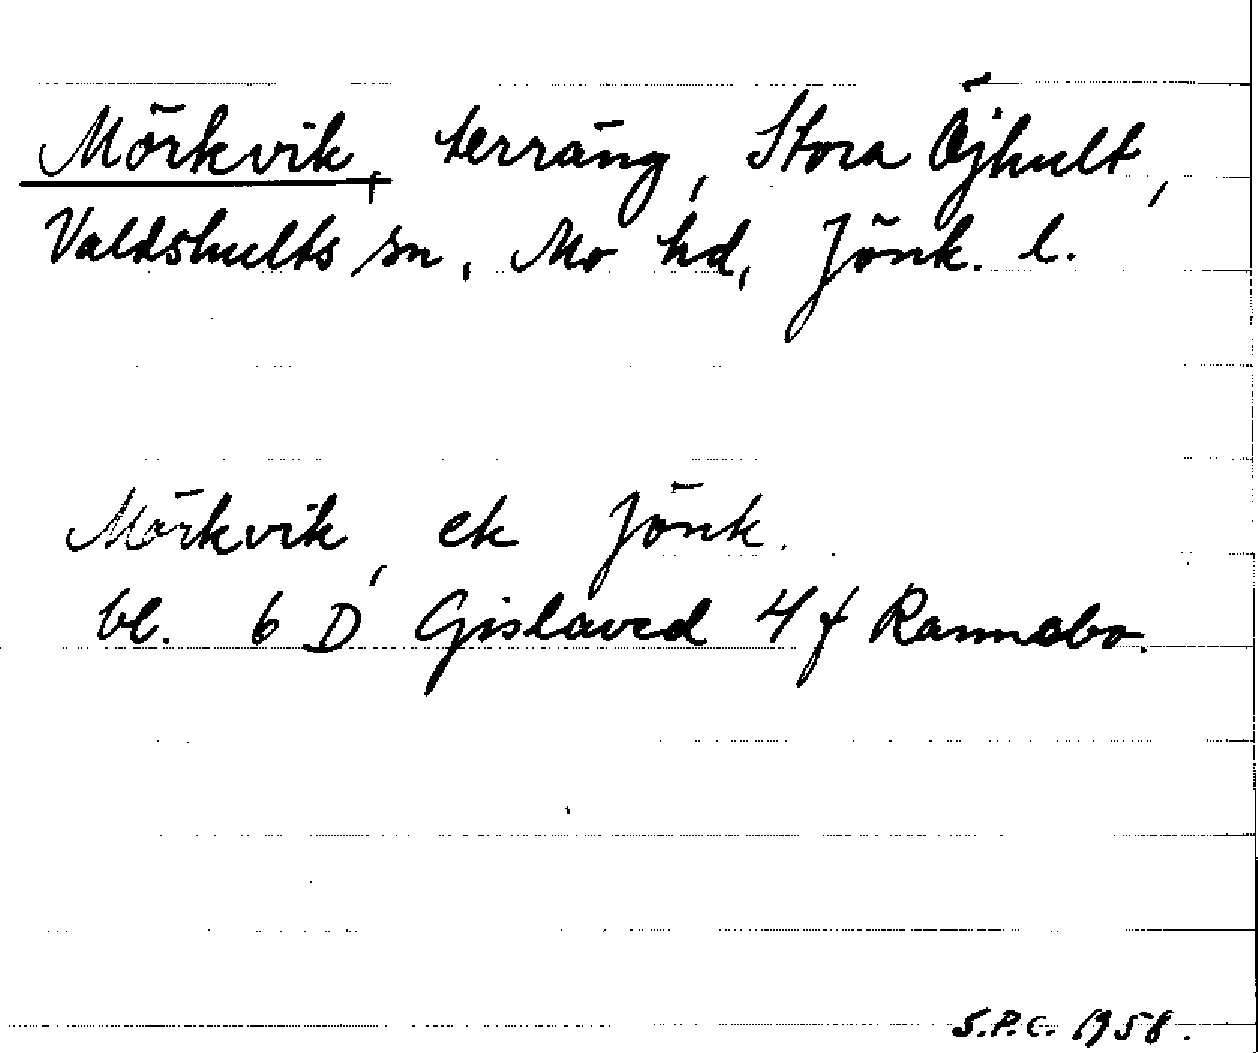 Mörkvik, terräng, Stora Öjhult,
Valdshults sn, Mo hd, Jönk. l.
Mörkvik, ek Jönk.
bl. 6 D Gislaved 4 f Rannebo.
S.P.C. 1958.